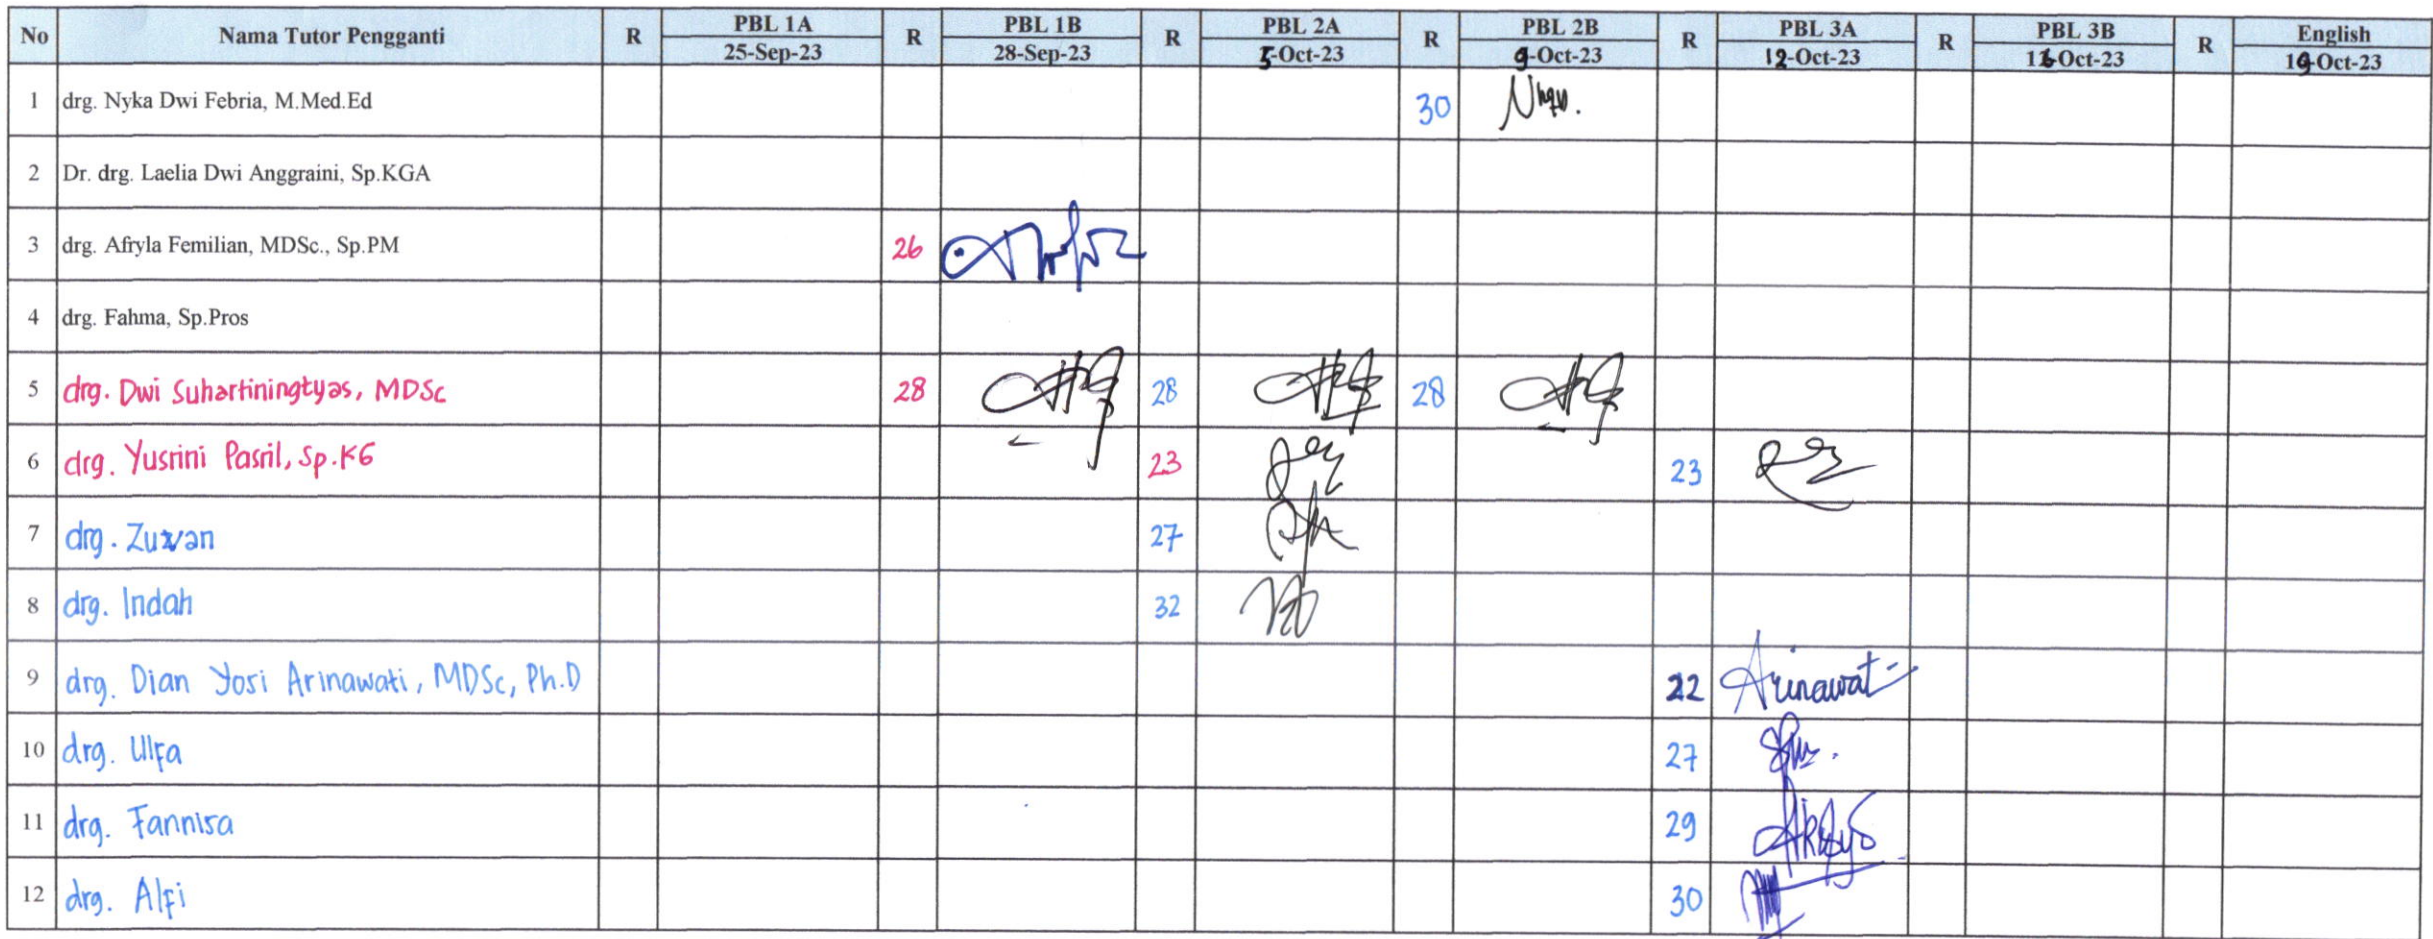 No Nama Tutor Pengganti R PBL 1A R PBL 1B R PBL 2A R PBL 2B R PBL 3A R PBL 3B R English
25-Sep-23 28-Sep-23 5-Oct-23 9-Oct-23 12-Oct-23 16-Oct-23 19-Oct-23
1 drg. Nyka Dwi Febria, M.Med.Ed 30
2 Dr. drg. Laelia Dwi Anggraini, Sp.KGA
3 drg. Afryla Femilian, MDSc., Sp.PM 26
4 drg. Fahma, Sp.Pros
5 drg. Dwi Suhartiningtyas, MDSc 28 28 28
6 drg. Yusrini Pasril, Sp.KG 23 23
7 drg. Zuwan 27
8 drg. Indah 32
9 drg. Dian Yosi Arinawati, MDSc, Ph.D 22 Arinawati
10 drg. Ulfa 27
11 drg. Fannisa 29
12 drg. Alfi 30